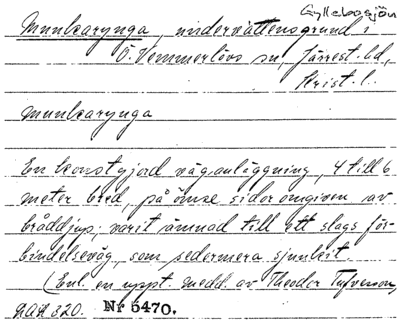 Gyllebosjön
Munkarynga, undervattensgrund i
Ö. Vemmerlövs sn, Järrest. hd,
Krist. l.
Munkarynga
En konstgjord väganläggning, 4 till 6
meter bred, på ömse sidor omgiven av
bråddjup, varit ämnad till ett slags för-
bindelseväg, som sedermera sjunkit.
(Enl. en uppt. medd. av Theodor Tufvesson,
320. Nr 5470.